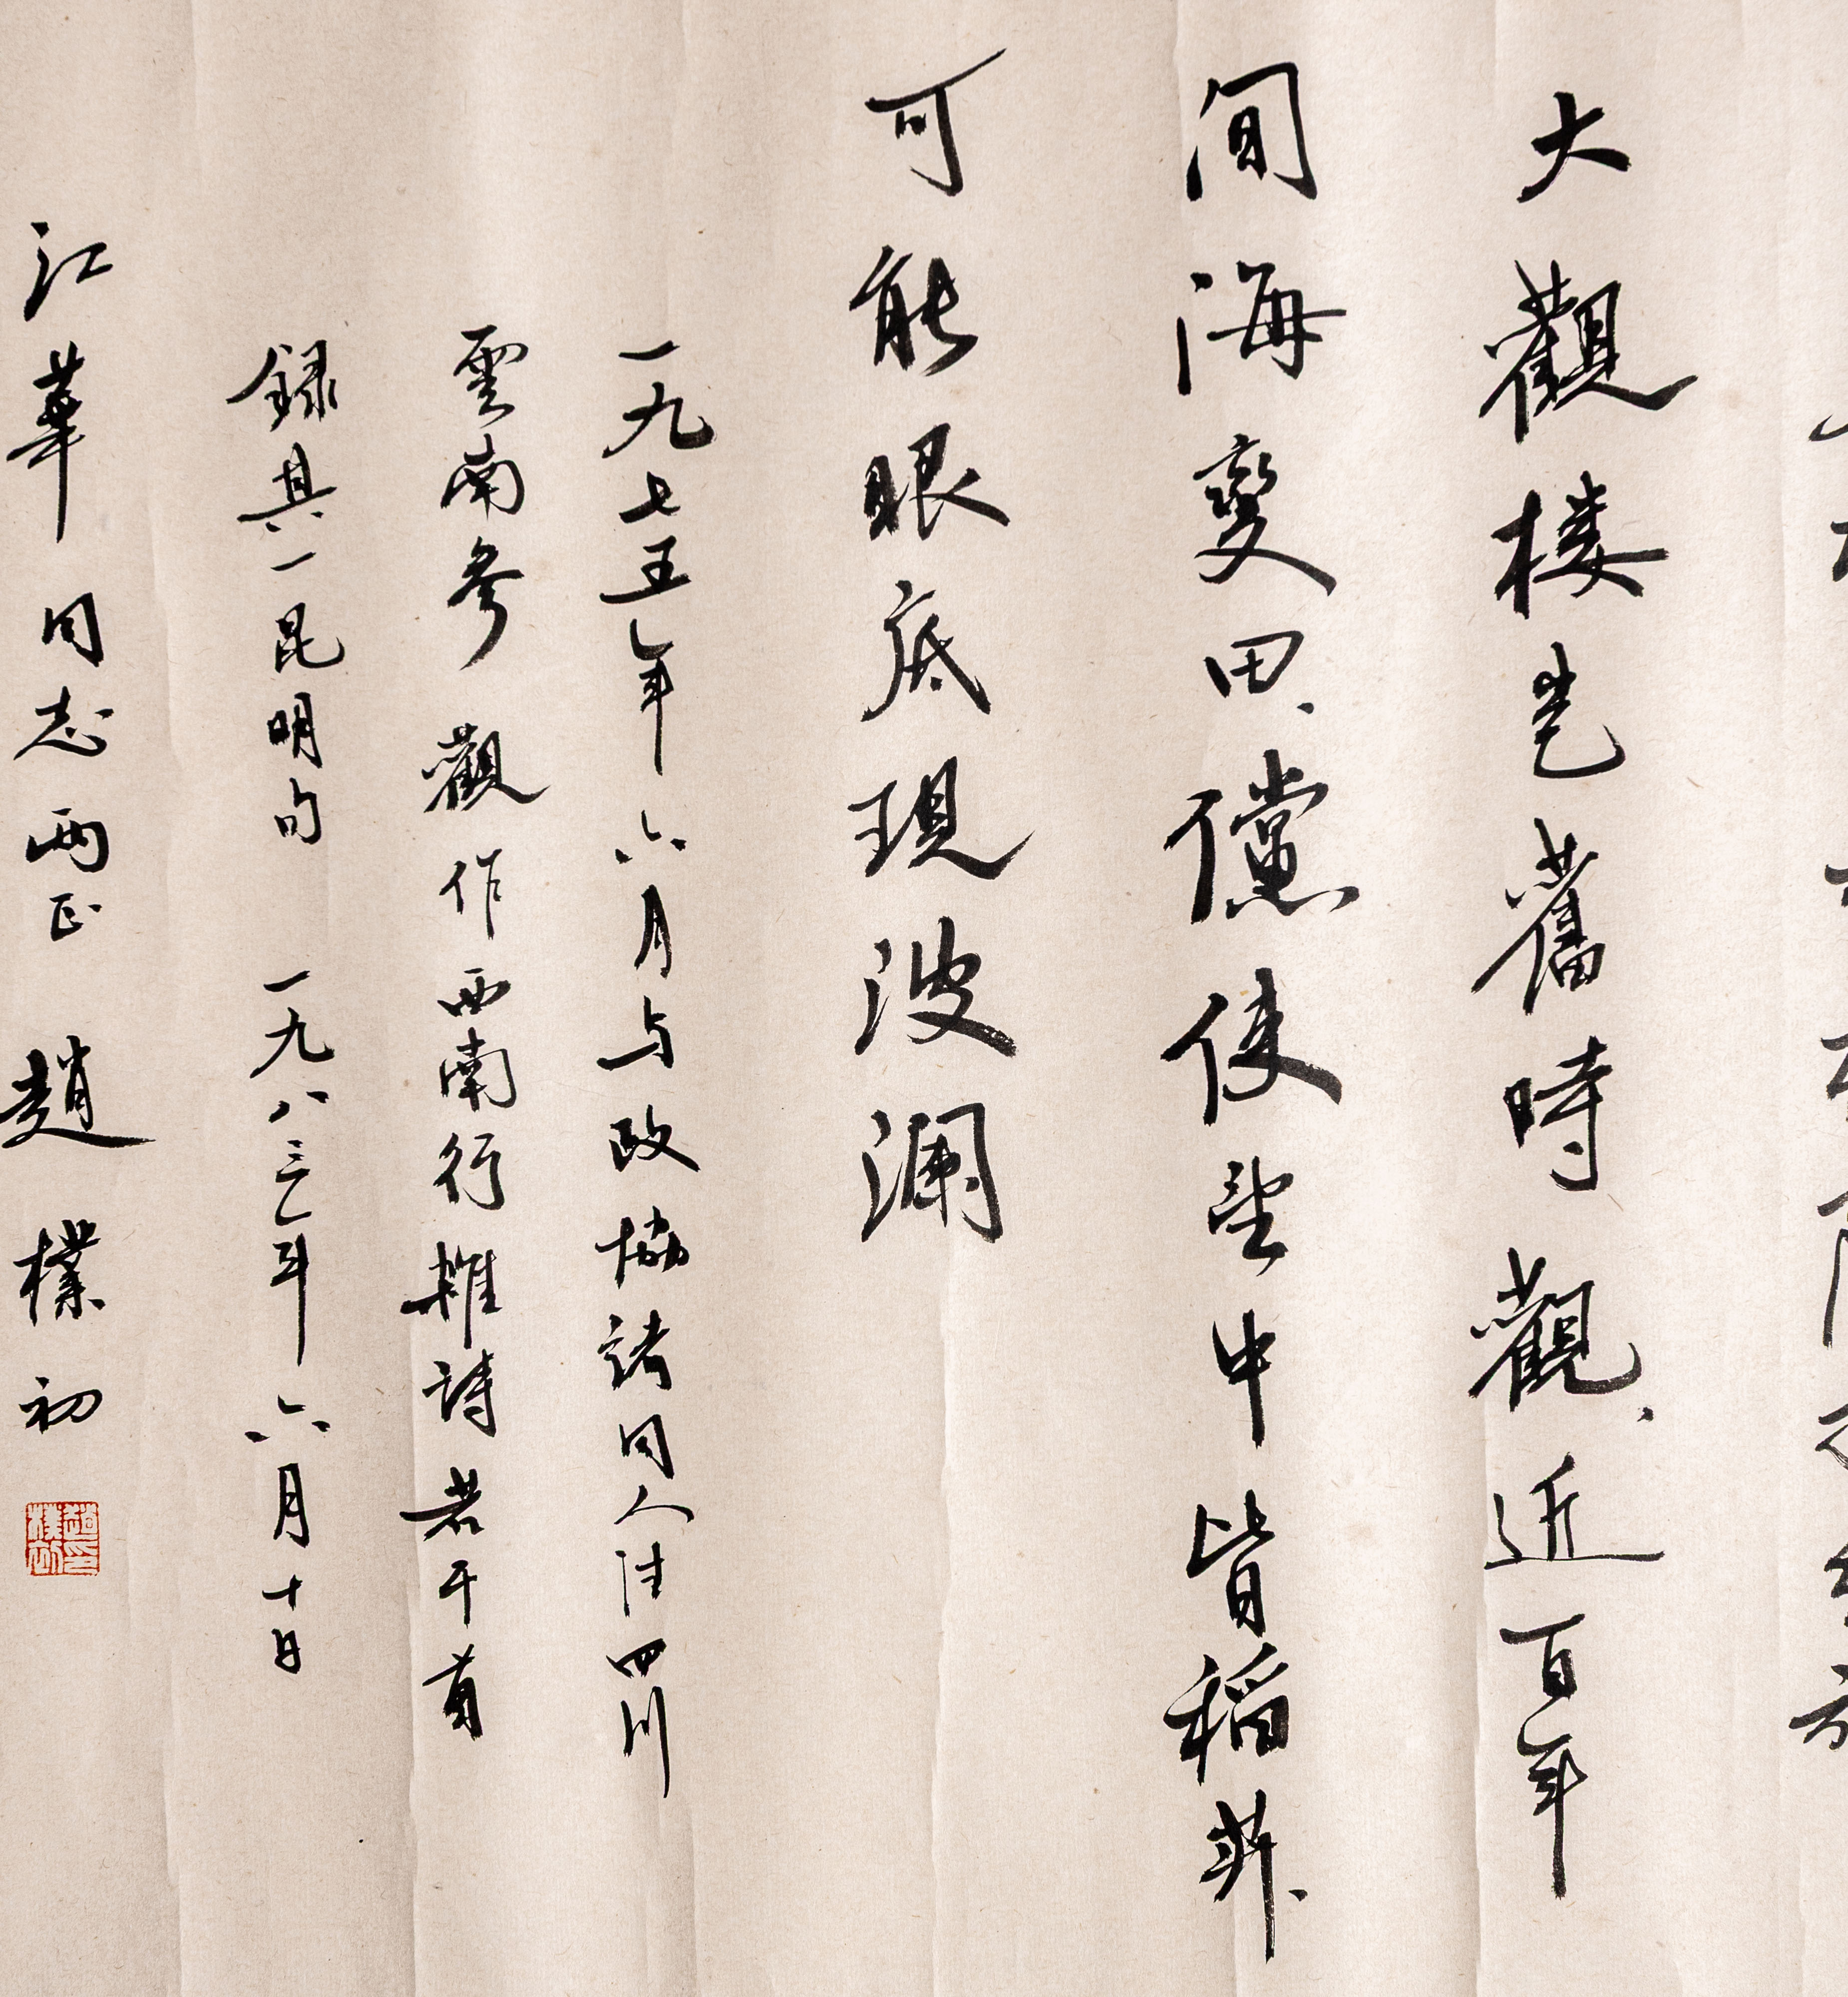 大觀楼豈舊時觀、近百年
间海變田、儻使望中皆稻菽、
可能眼底現波澜
一九七五年六月与政协诸同人往四川
雲南参觀作西南行雜诗若干首
録其一昆明句 一九八三年六月十日
江華同志两正 趙樸初
趙樸初印